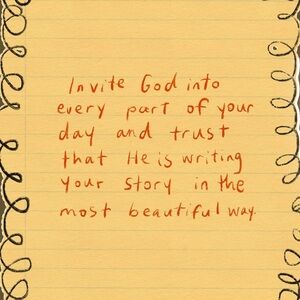 Invite God into
every part of your
day and trust
that He is writing
your story in the
most beautiful way.